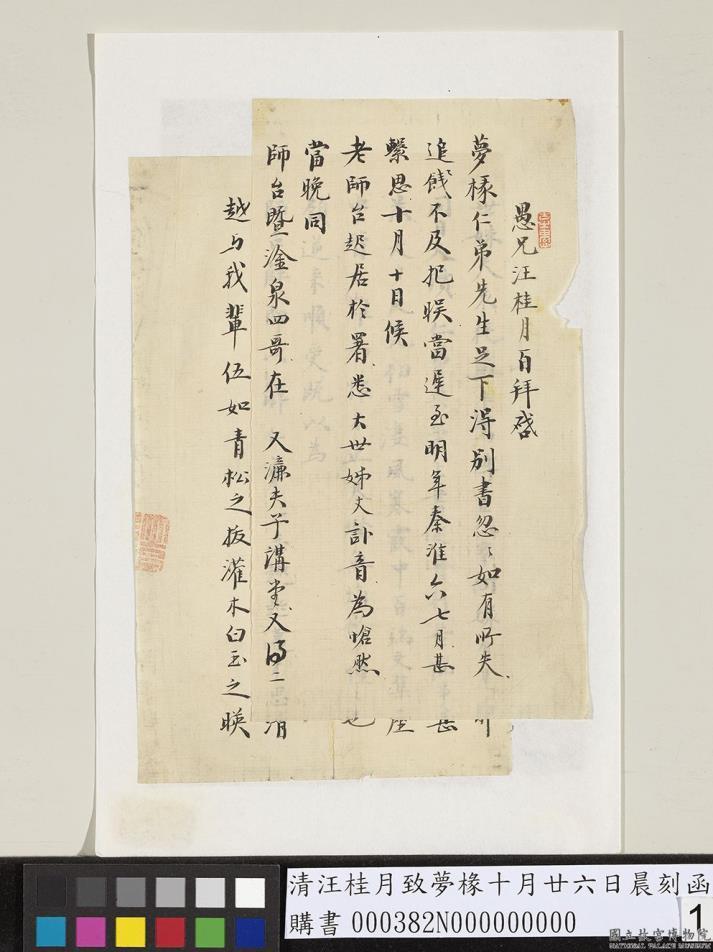 愚兄汪桂月百拜啓
夢椽仁弟先生足下得別書忽〻如有所失
追餞不及把睽當遲至明年秦淮六七月甚
繫思十月十日候
老師台起居於署悉大世姊丈訃音為愴然
當晚同
師台暨淦泉四哥在 又濂夫子講堂又得二
越与我輩伍如青松之拔灌木白玉之映
清汪桂月致夢椽十月廿六日晨刻函
購書 000382N000000000
1
國立故宮博物院
NATIONAL PALACE MUSEUM